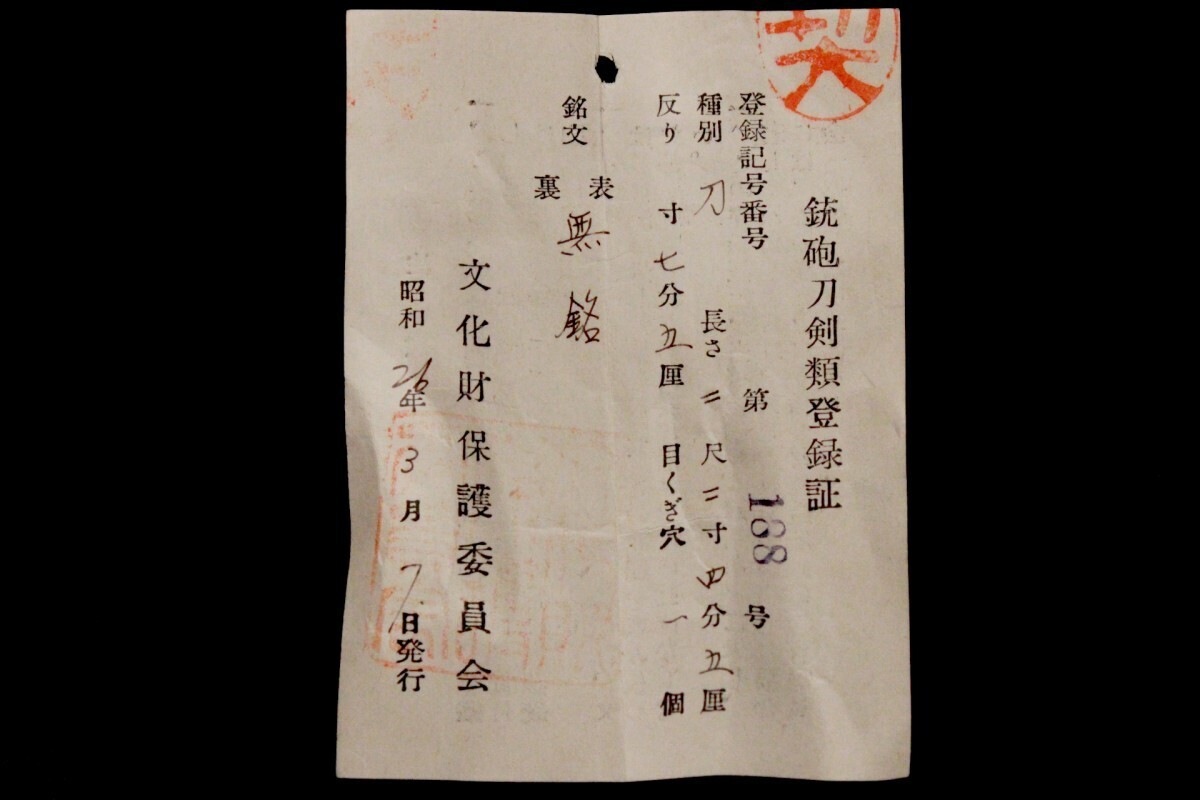 銃砲刀剣類登録証
登録記号番号 第 188 号
種別 刀 長さ 二 尺 二 寸 四 分 五 厘
反り 寸 七 分 五 厘 目くぎ穴 一 個
銘文 表 裏 無 銘
文化財保護委員会
昭和 26 年 3 月 7 日発行